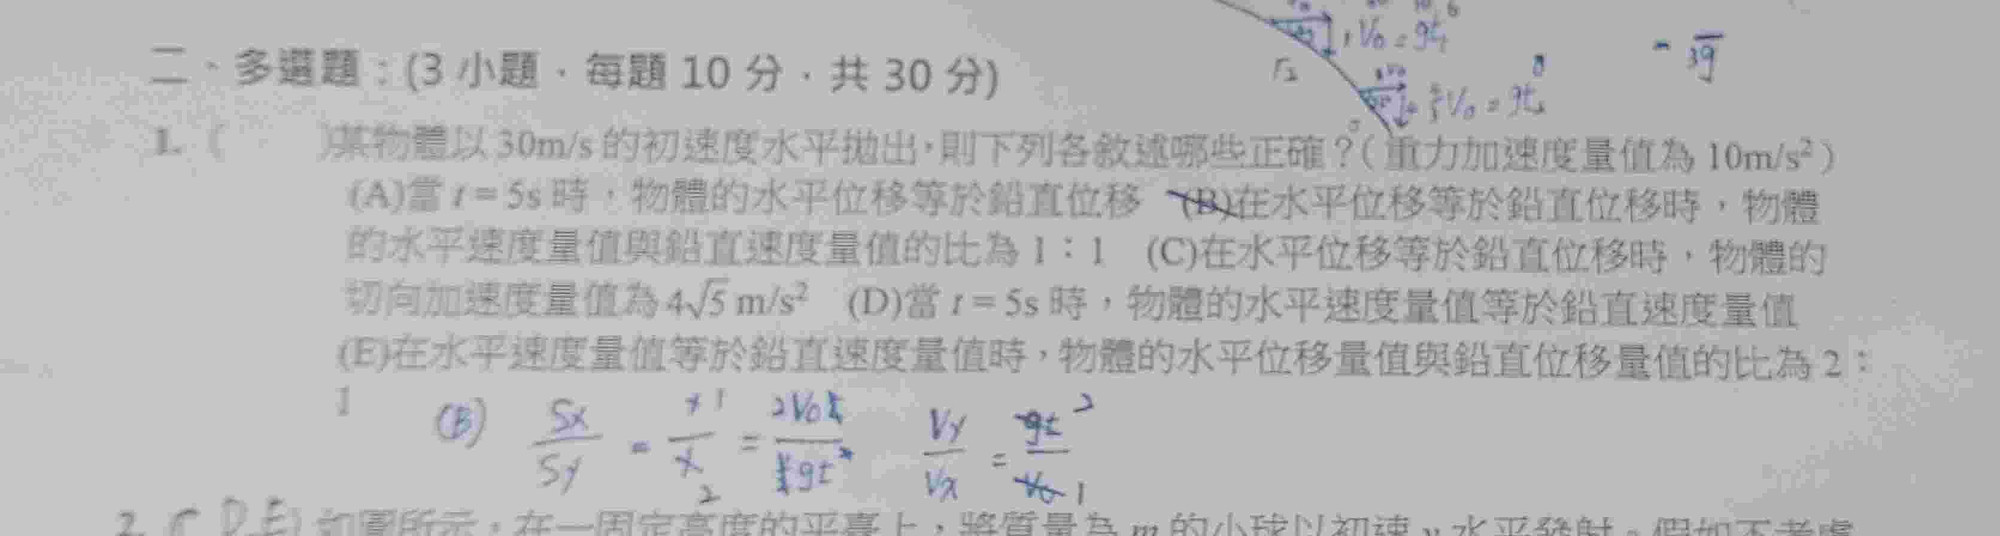 1V₀ = gt₁
- 3g
r₂
= gt₂
二、多選題：(3 小題，每題 10 分，共 30 分)
1. ( )某物體以 30m/s 的初速度水平拋出，則下列各敘述哪些正確？( 重力加速度量值為 10m/s² )
(A)當 t = 5s 時，物體的水平位移等於鉛直位移 (B)在水平位移等於鉛直位移時，物體
的水平速度量值與鉛直速度量值的比為 1：1 (C)在水平位移等於鉛直位移時，物體的
切向加速度量值為 4√5 m/s² (D)當 t = 5s 時，物體的水平速度量值等於鉛直速度量值
(E)在水平速度量值等於鉛直速度量值時，物體的水平位移量值與鉛直位移量值的比為 2：
1
(B) Sx/Sy = = 2V₀t/gt² Vy/Vx = gt 2/V₀ 1
2. ( D E) 如圖所示，在一固定高度的平臺上，將質量為 m 的小球以初速 v 水平發射。假如不考慮